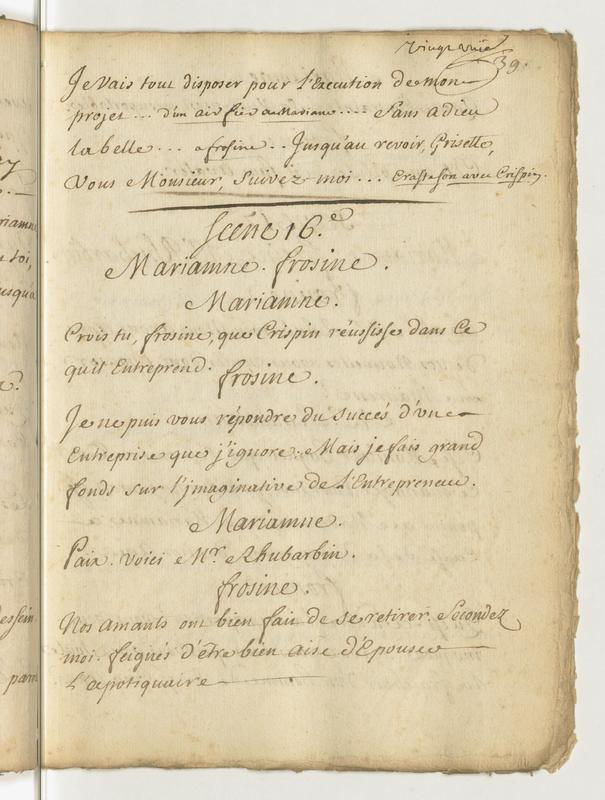 vingt neuf
39.
Je vais tout disposer pour l'Execution de mon
projet... d'un air fier a Mariane.... Sans adieu
la belle... a frosine.. Jusqu'au revoir, Grisette,
Vous Monsieur, Suivez-moi... Erast son avec Crispin.
Scene 16.e
Mariamne. frosine.
Mariamne.
Crois tu, frosine, que Crispin réussisse dans Ce
qu'il Entreprend.
frosine.
Je ne puis vous répondre du succés d'vne
Entreprise que j'ignore. Mais je fais grand
fonds sur l'jmaginative de L'Entrepreneur.
Mariamne.
Paix. Voici Mr. Rhubarbin.
frosine.
Nos amants ont bien fait de se retirer. Secondez
moi. feignés d'étre bien aise d'Epouser
L'apotiquaire